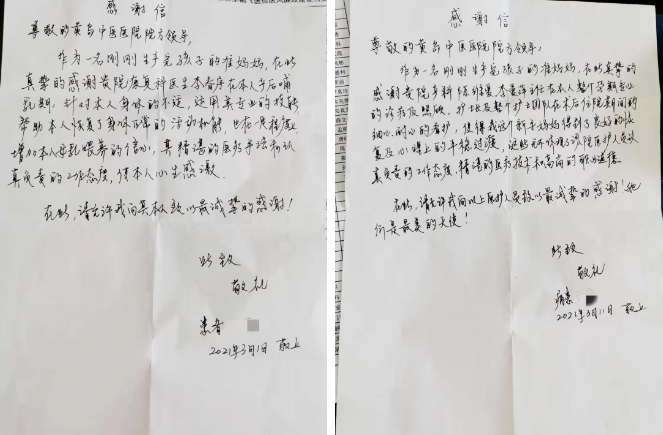 感谢信
尊敬的黄岛中医医院院方领导，
作为一名刚刚生产完孩子的准妈妈，在此
真挚的感谢贵院康复科医生李春序在本人产后哺
乳期，针对本人身体的不适，运用其专业的技能
帮助本人恢复了身体正常的活动机能，也在一定程度上
增加本人母乳喂养的信心，其精湛的医疗手法和认
真负责的工作态度，使本人心生感激。
在此，请允许我向其本人致以最诚挚的感谢！
此致
敬礼
患者
2021年3月1日 敬上
感谢信
尊敬的黄岛中医医院院方领导：
作为一名刚刚生产完孩子的准妈妈，在此真挚的
感谢贵院产科
李
在本人整个孕期专业
的诊疗及照顾，护士长及整个护士团队在本人住院期间的
细心、耐心的看护，使得我这个新手妈妈得到了良好的恢
复及心理上的平稳过渡，这些无不体现了该院医护人员认
真负责的工作态度，精湛的医疗技术和高尚的职业道德。
在此，请允许我向以上医护人员致以最诚挚的感谢！她
们是最美的天使！
此致
敬礼
病患
2021年3月11日 敬上